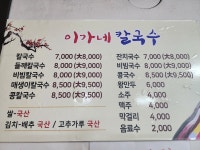 이가네 칼국수
칼국수 7,000 (大8,000)
들깨칼국수 8,000 (大9,000)
비빔칼국수 8,000 (大9,000)
매생이칼국수 8,500 (大9,500)
콩칼국수 8,500 (大9,500)
쌀-국산
김치-배추 국산 / 고추가루 국산
잔치국수 7,000 (大8,000)
비빔국수 8,000 (大9,000)
콩국수 8,500 (大9,500)
왕만두 6,000
소주 4,000
맥주 4,000
막걸리 3,000
음료수 2,000